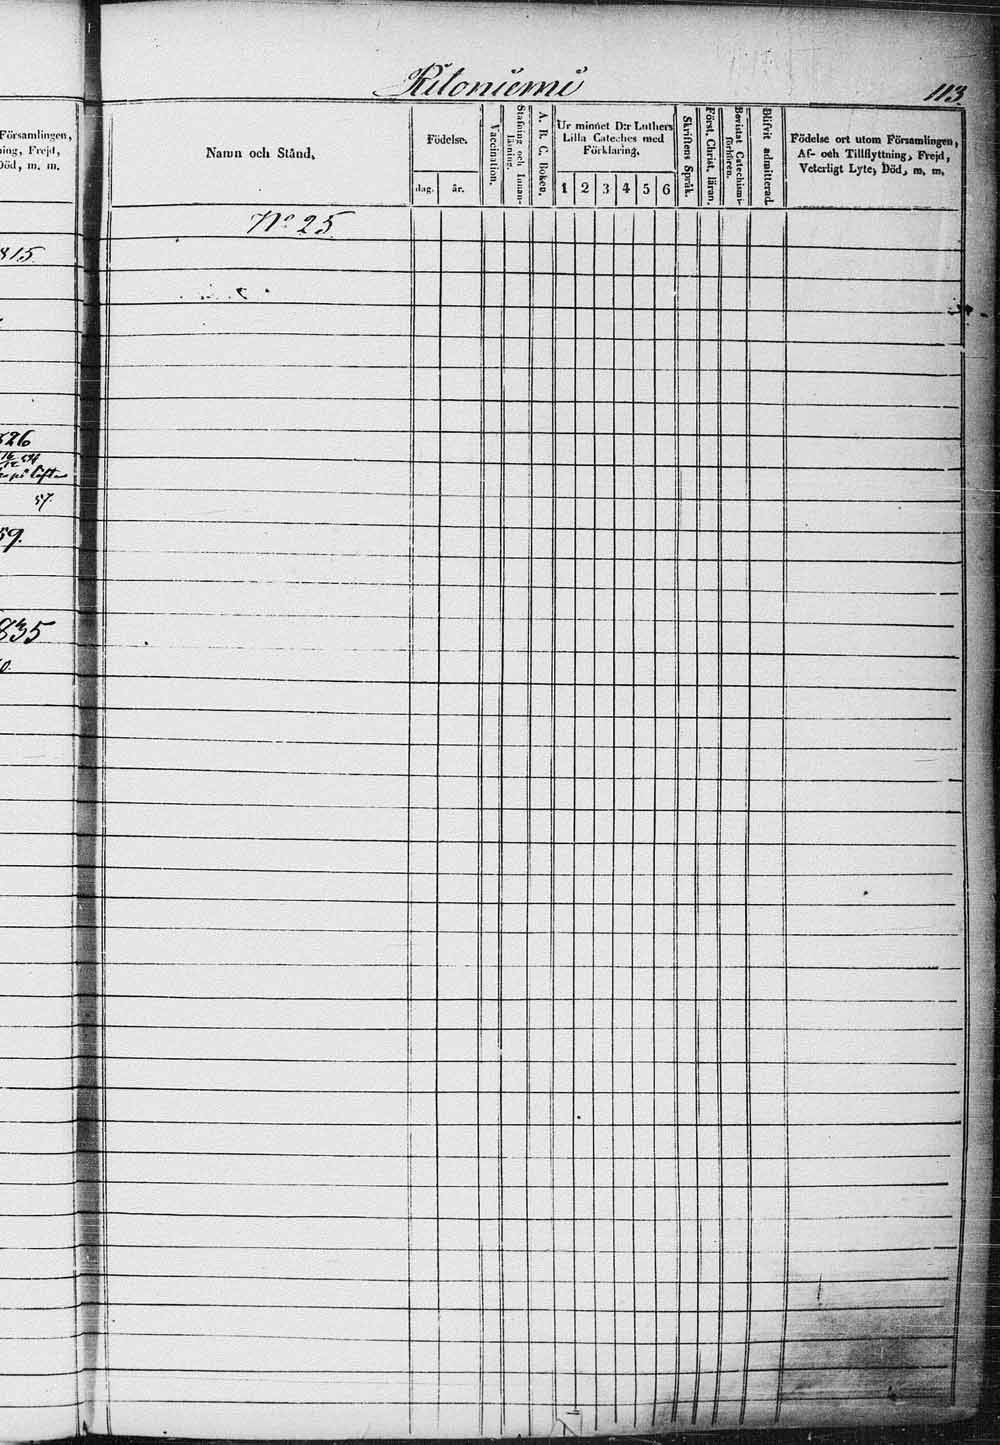 Kiloniemi
113.
Församlingen,
ing, Frejd,
Död, m. m.
Namn och Stånd,
Födelse.
dag.
år.
Vaccination.
Stafning och Innan-
läsning.
A. B. C. Boken.
Ur minnet D:r Luthers
Lilla Cateches med
Förklaring.
1 2 3 4 5 6
Skriftens Språk.
Först. Christ. läran.
Bevistat Catechismi-
förhören.
Blifvit admitterad.
Födelse ort utom Församlingen,
Af- och Tillflyttning, Frejd,
Veterligt Lyte, Död, m. m.
No 25
815.
526
57.
59.
835
0.